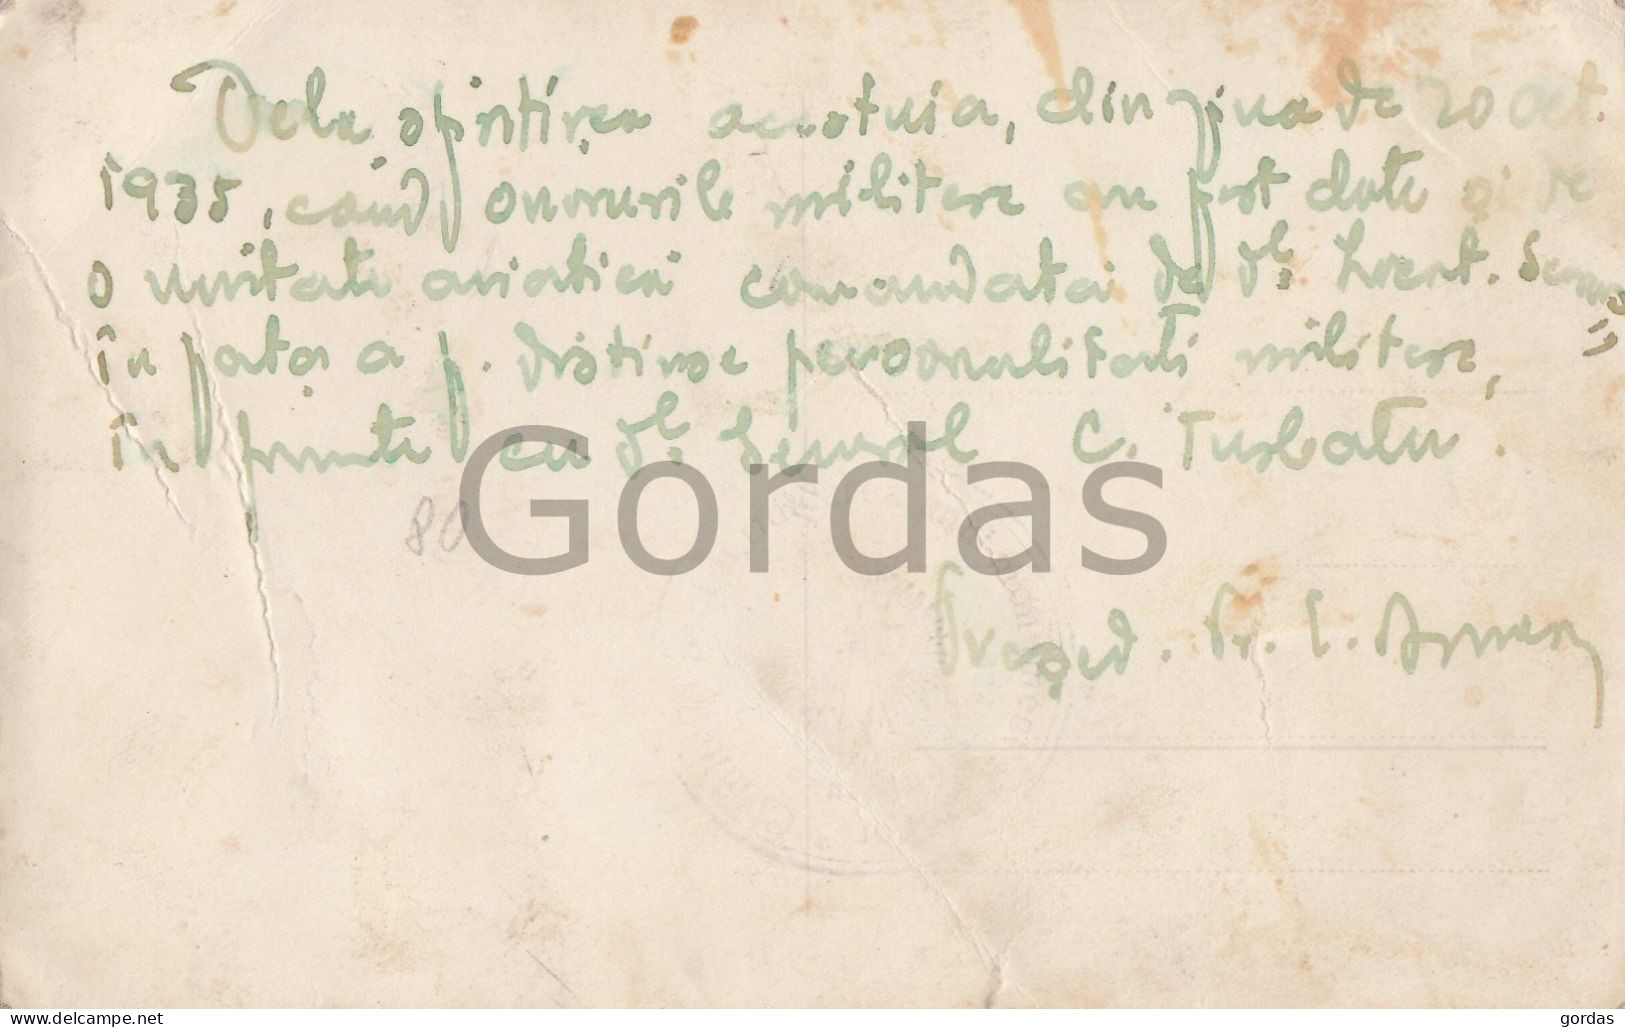 Dela sfințirea acestuia, din ziua de 20 Oct.
1935, când onorurile militare au fost date și de
o unitate aviatică comandată de dl. Locent.
în fața a f. distinse personalități militare,
în frunte cu dl. General C. Turbatu.
80
Gordas
Președ. Pr. I.
www.delcampe.net
gordas